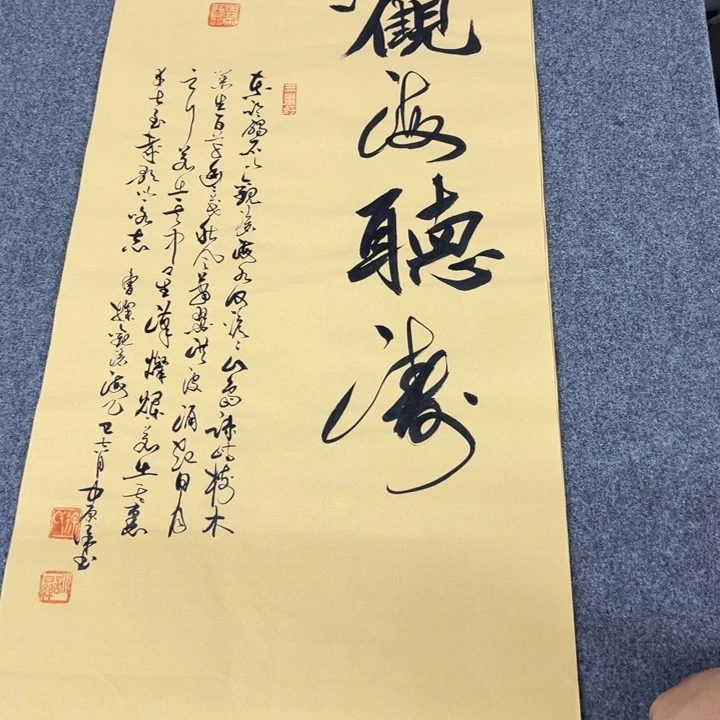 觀海聽濤
東臨碣石以觀滄海水何澹澹山島竦峙樹木
叢生百草豐茂秋風蕭瑟洪波涌起日月
之行若出其中星漢燦爛若出其裏
幸甚至哉歌以詠志 曹操觀滄海 六月